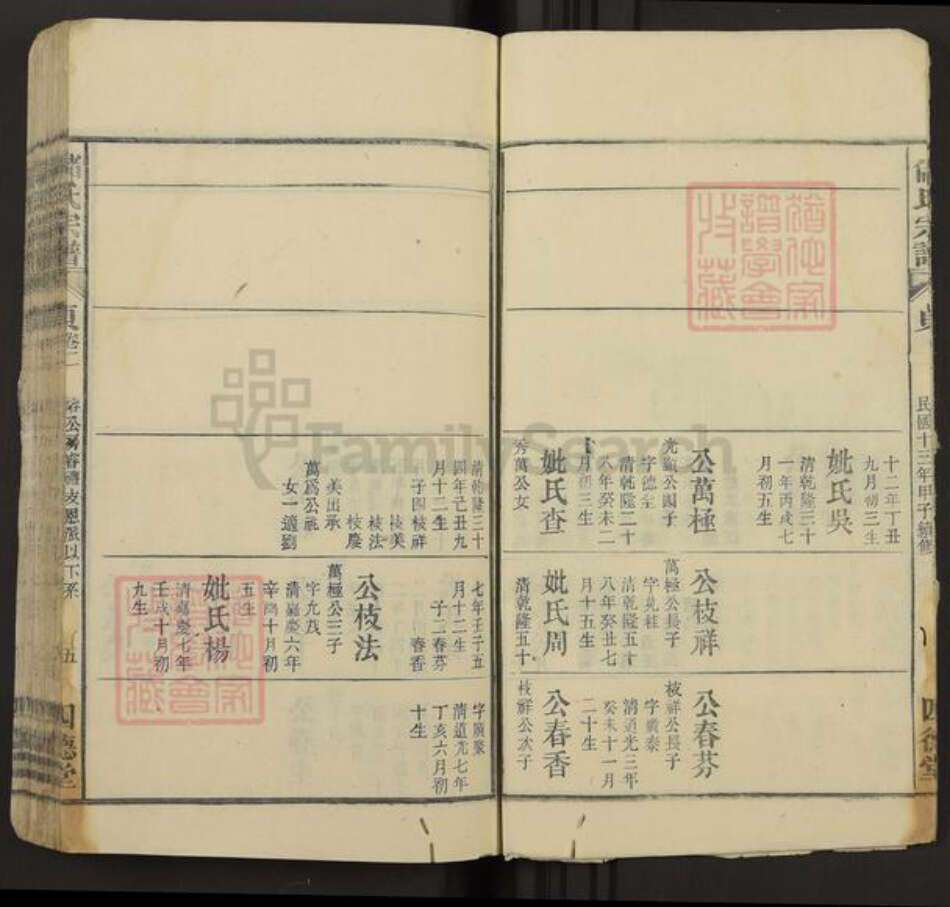 氏宗譜
民國十三年甲子續修
十二年丁丑
九月初三生
妣氏吳
清乾隆三十
一年丙戌七
月初五生
公萬極
光顯公四子
字德
清乾隆二十
八年癸未二
月初三生
妣氏查
秀萬公女
公枝祥
萬極公長子
字 桂
清乾隆五十
八年癸丑七
月十五生
妣氏周
清乾隆五十
公春芬
枝祥公長子
字 泰
清道光三年
癸未十一月
二十生
公春香
枝祥公次子
清乾隆三十
四年己丑九
月十二生
子四枝祥
枝美
枝法
枝慶
美出承
萬爲公祧
女一適劉
七年壬子五
月十二生
子二春芬
春香
公枝法
萬極公三子
字允茂
清嘉慶六年
辛酉十月初
五生
妣氏楊
清嘉慶七年
壬戌十月初
九生
字廣聚
清道光七年
丁亥六月初
十生
氏宗譜
貞卷二
五
四德堂
FamilySearch